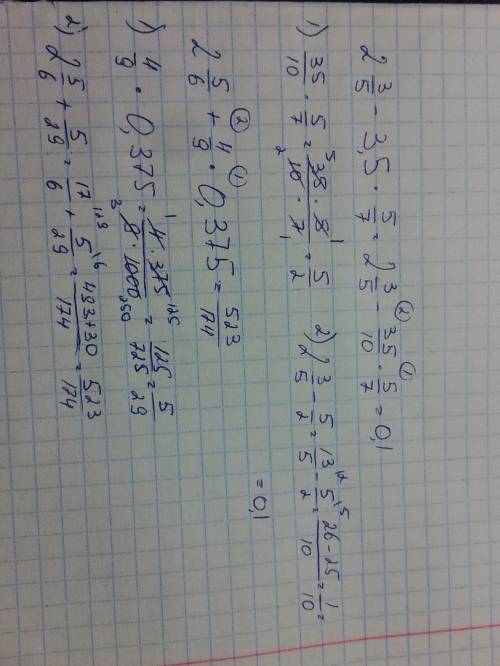 2 3/5 - 3,5 · 5/7 = 2 3/5 -② 35/10 ·① 5/7 = 0,1
1) 35/10 · 5/7 = 35 · 5/10 · 7 = 5/2 2) 2 3/5 - 5/2 = 13/5 - 5/2 = 26-25/10 = 1/10 =
= 0,1
2 5/6 +② 4/9 ·① 0,375 = 523/174
1) 4/9 · 0,375 = 4 · 375/9 · 1000 = 125/725 = 5/29
2) 2 5/6 + 5/29 = 17/6 + 5/29 = 493+30/174 = 523/174